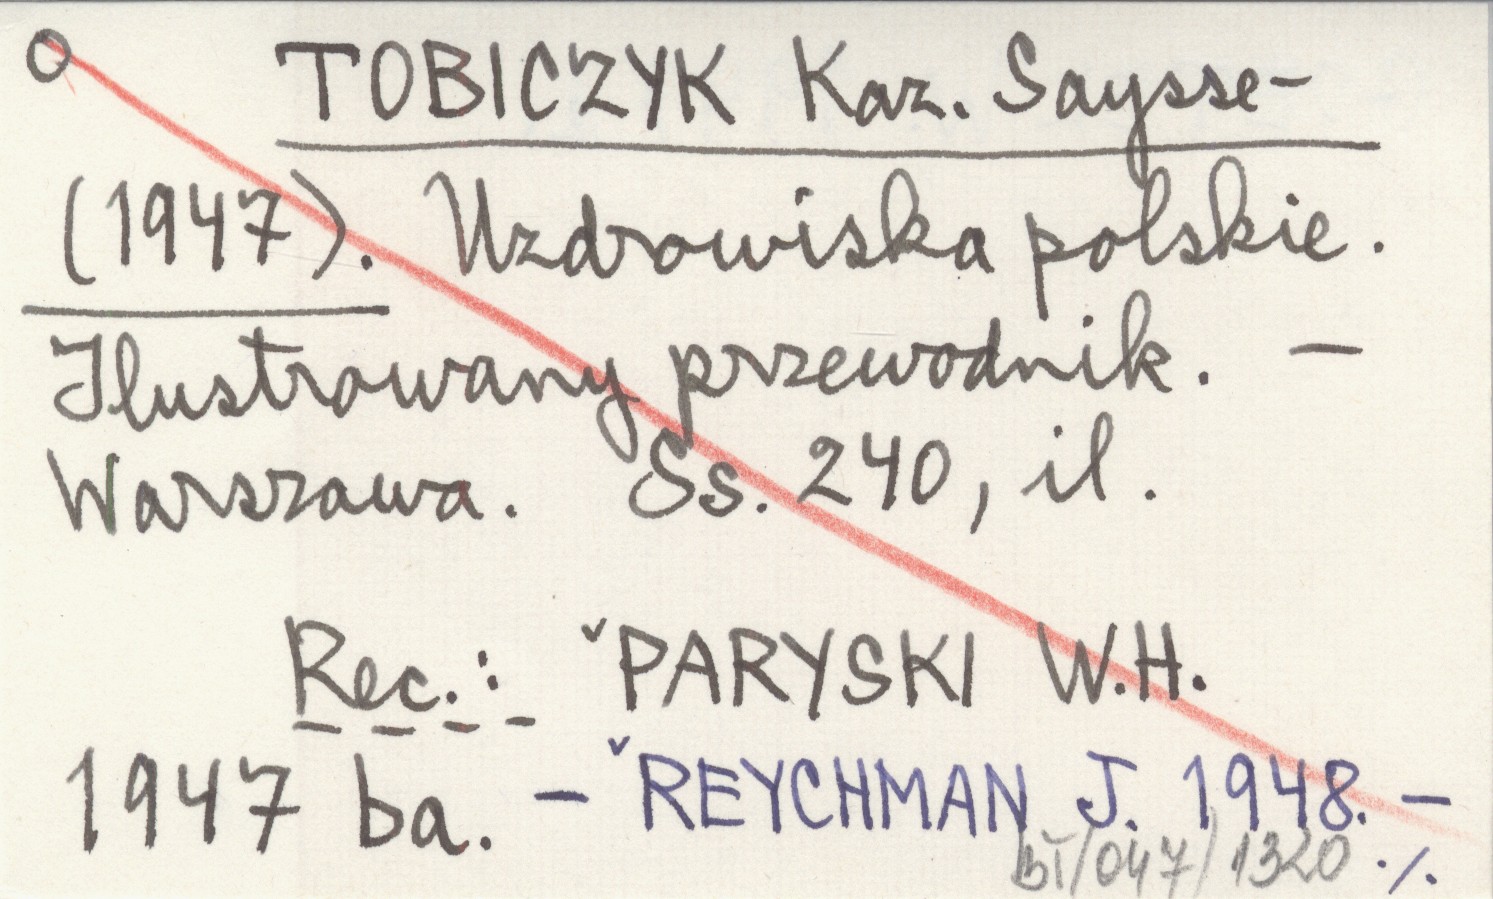 TOBICZYK Kaz. Saysse-
(1947). Uzdrowiska polskie.
Ilustrowany przewodnik. —
Warszawa. Ss. 240, il.
Rec.: ˇPARYSKI W.H.
1947 ba. – ˇREYCHMAN J. 1948. –
BT/047/1320 ./.